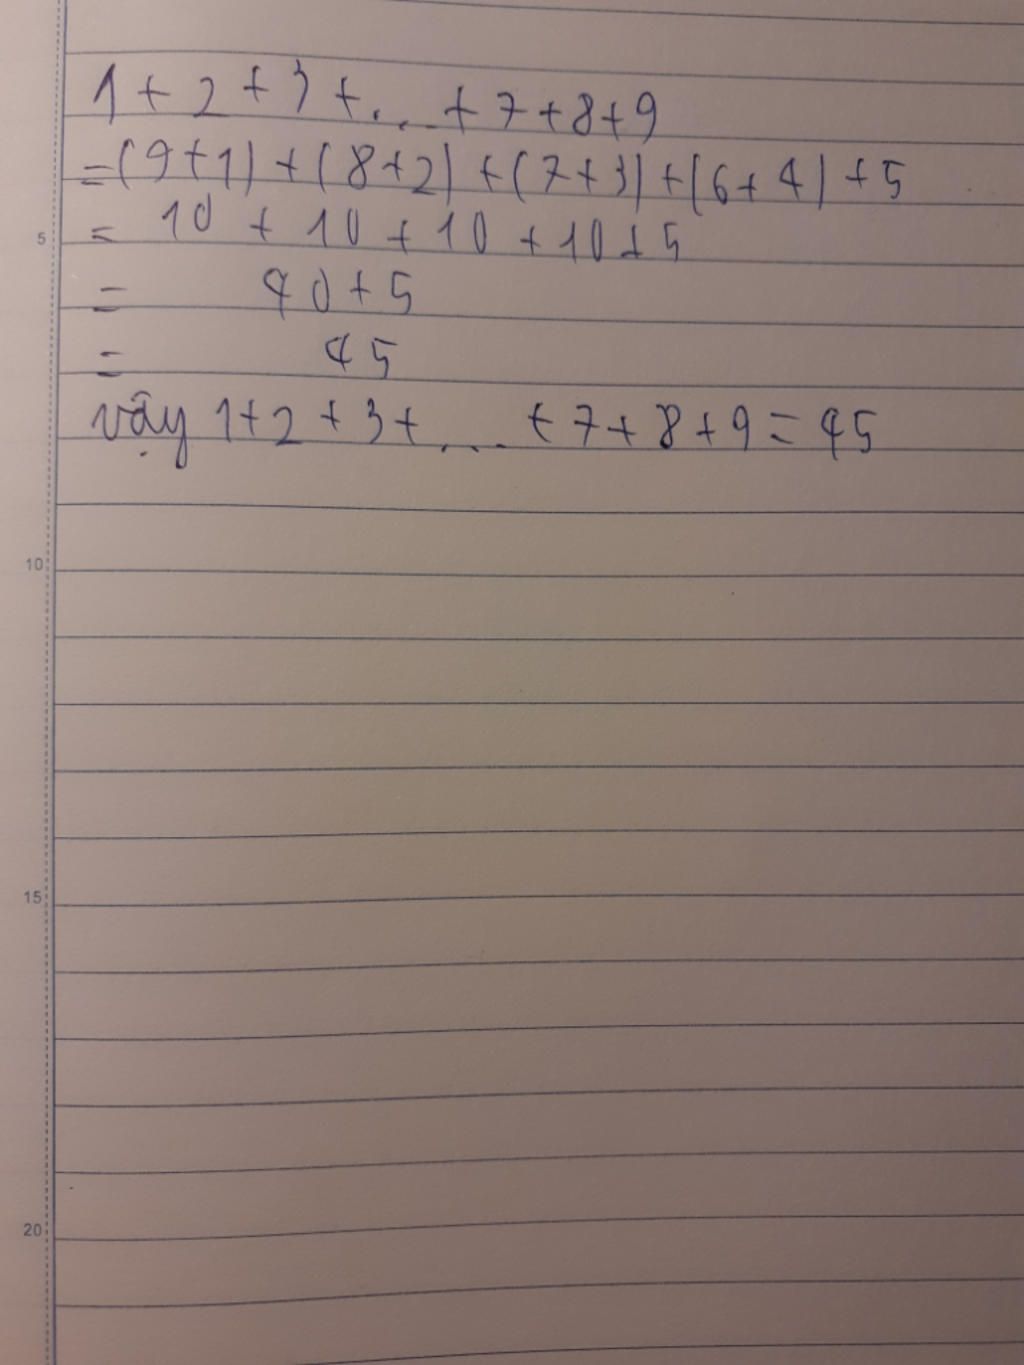 1 + 2 + 3 + ... + 7 + 8 + 9
= (9 + 1) + (8 + 2) + (7 + 3) + (6 + 4) + 5
5
= 10 + 10 + 10 + 10 + 5
= 40 + 5
= 45
vậy 1 + 2 + 3 + ... + 7 + 8 + 9 = 45
10
15
20